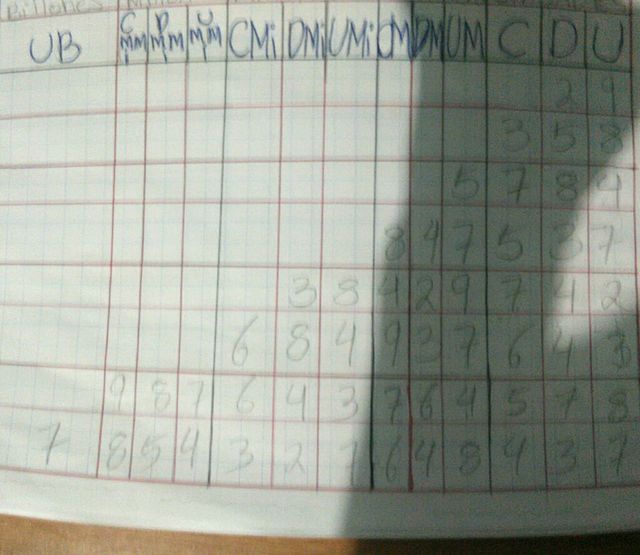 Billones
UB CMM DMM UMM CMi DMi UMi CM DM UM C D U
2 9
3 5 8
5 7 8 4
8 4 7 5 3 7
3 8 4 2 9 7 4 2
6 8 4 9 3 7 6 4 3
9 8 7 6 4 3 7 6 4 5 7 8
7 8 5 4 3 2 1 6 4 8 4 3 7